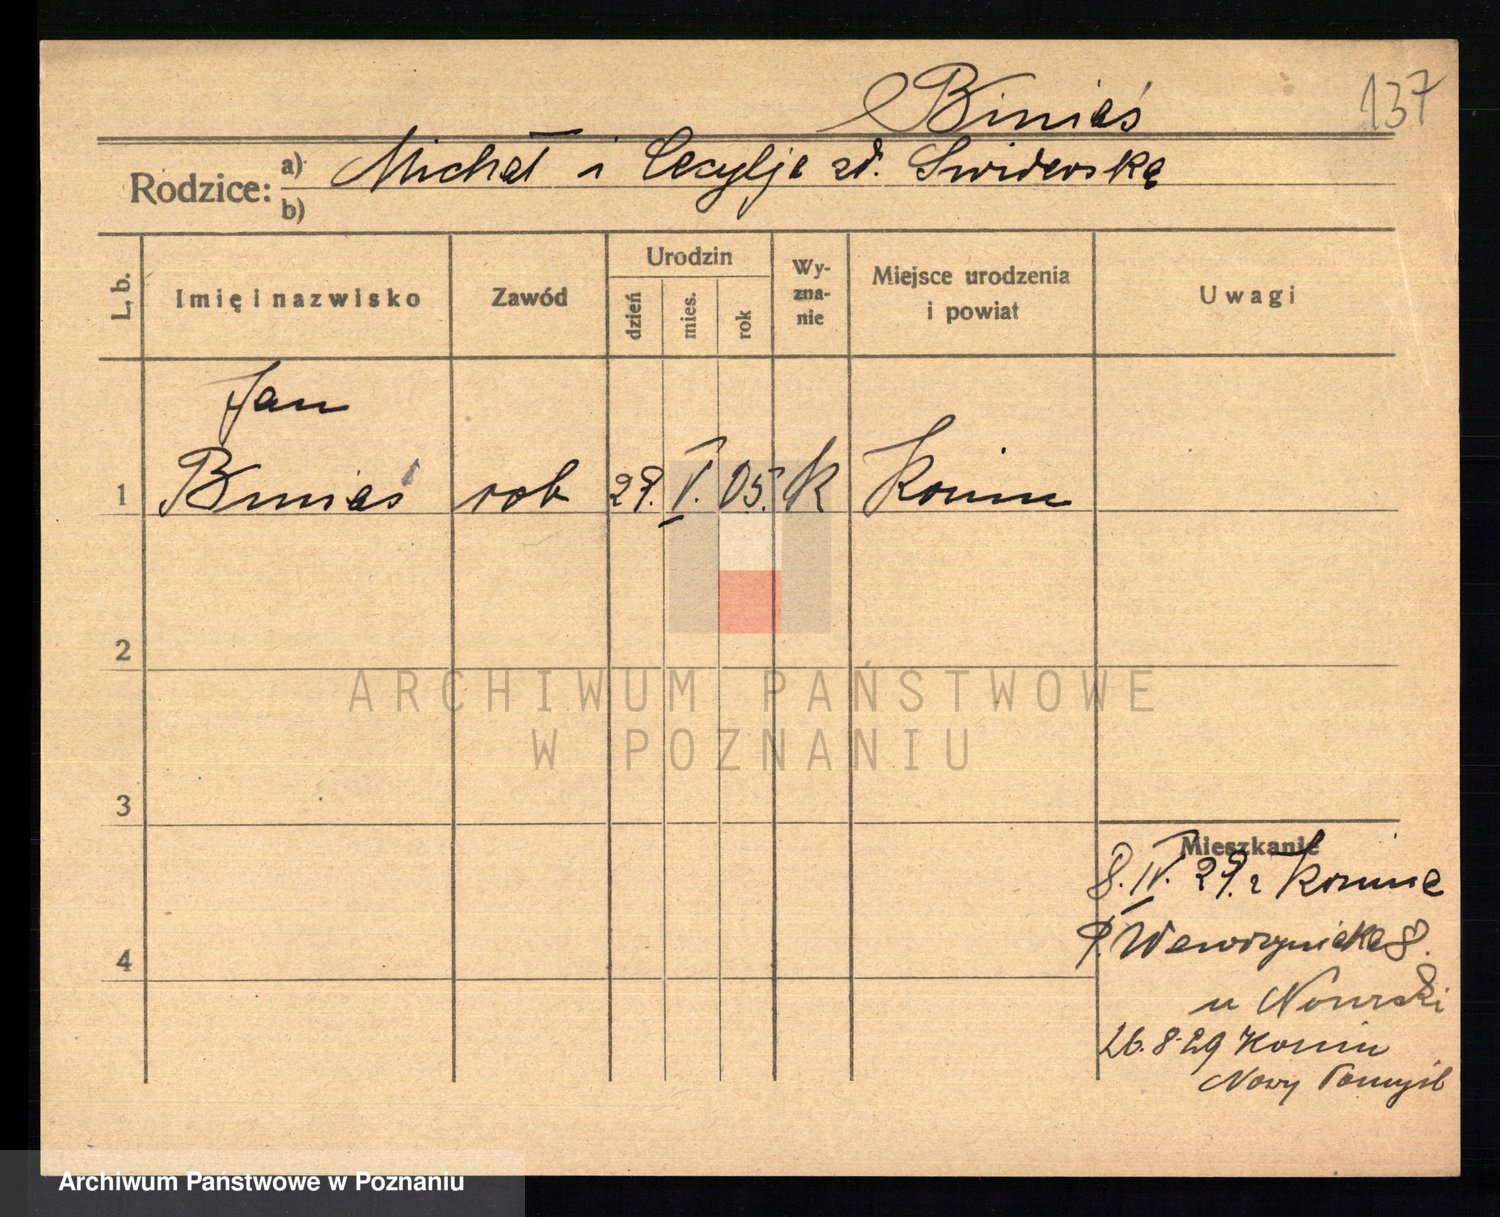 Biniaś
137
Rodzice: a) Michał i Cecylja zd. Swiderska
b)
L. b.
Imię i nazwisko
Zawód
Urodzin
dzień
mies.
rok
Wy-
zna-
nie
Miejsce urodzenia
i powiat
Uwagi
Jan
1 Biniaś rob 29. V. 05. k Konin
2
ARCHIWUM PAŃSTWOWE
W POZNANIU
3
Mieszkanie
8. IV. 29. z Konina
Wawrzyniaka 8.
u
4
26.8.29 Konin
Nowy Tomyśl
Archiwum Państwowe w Poznaniu